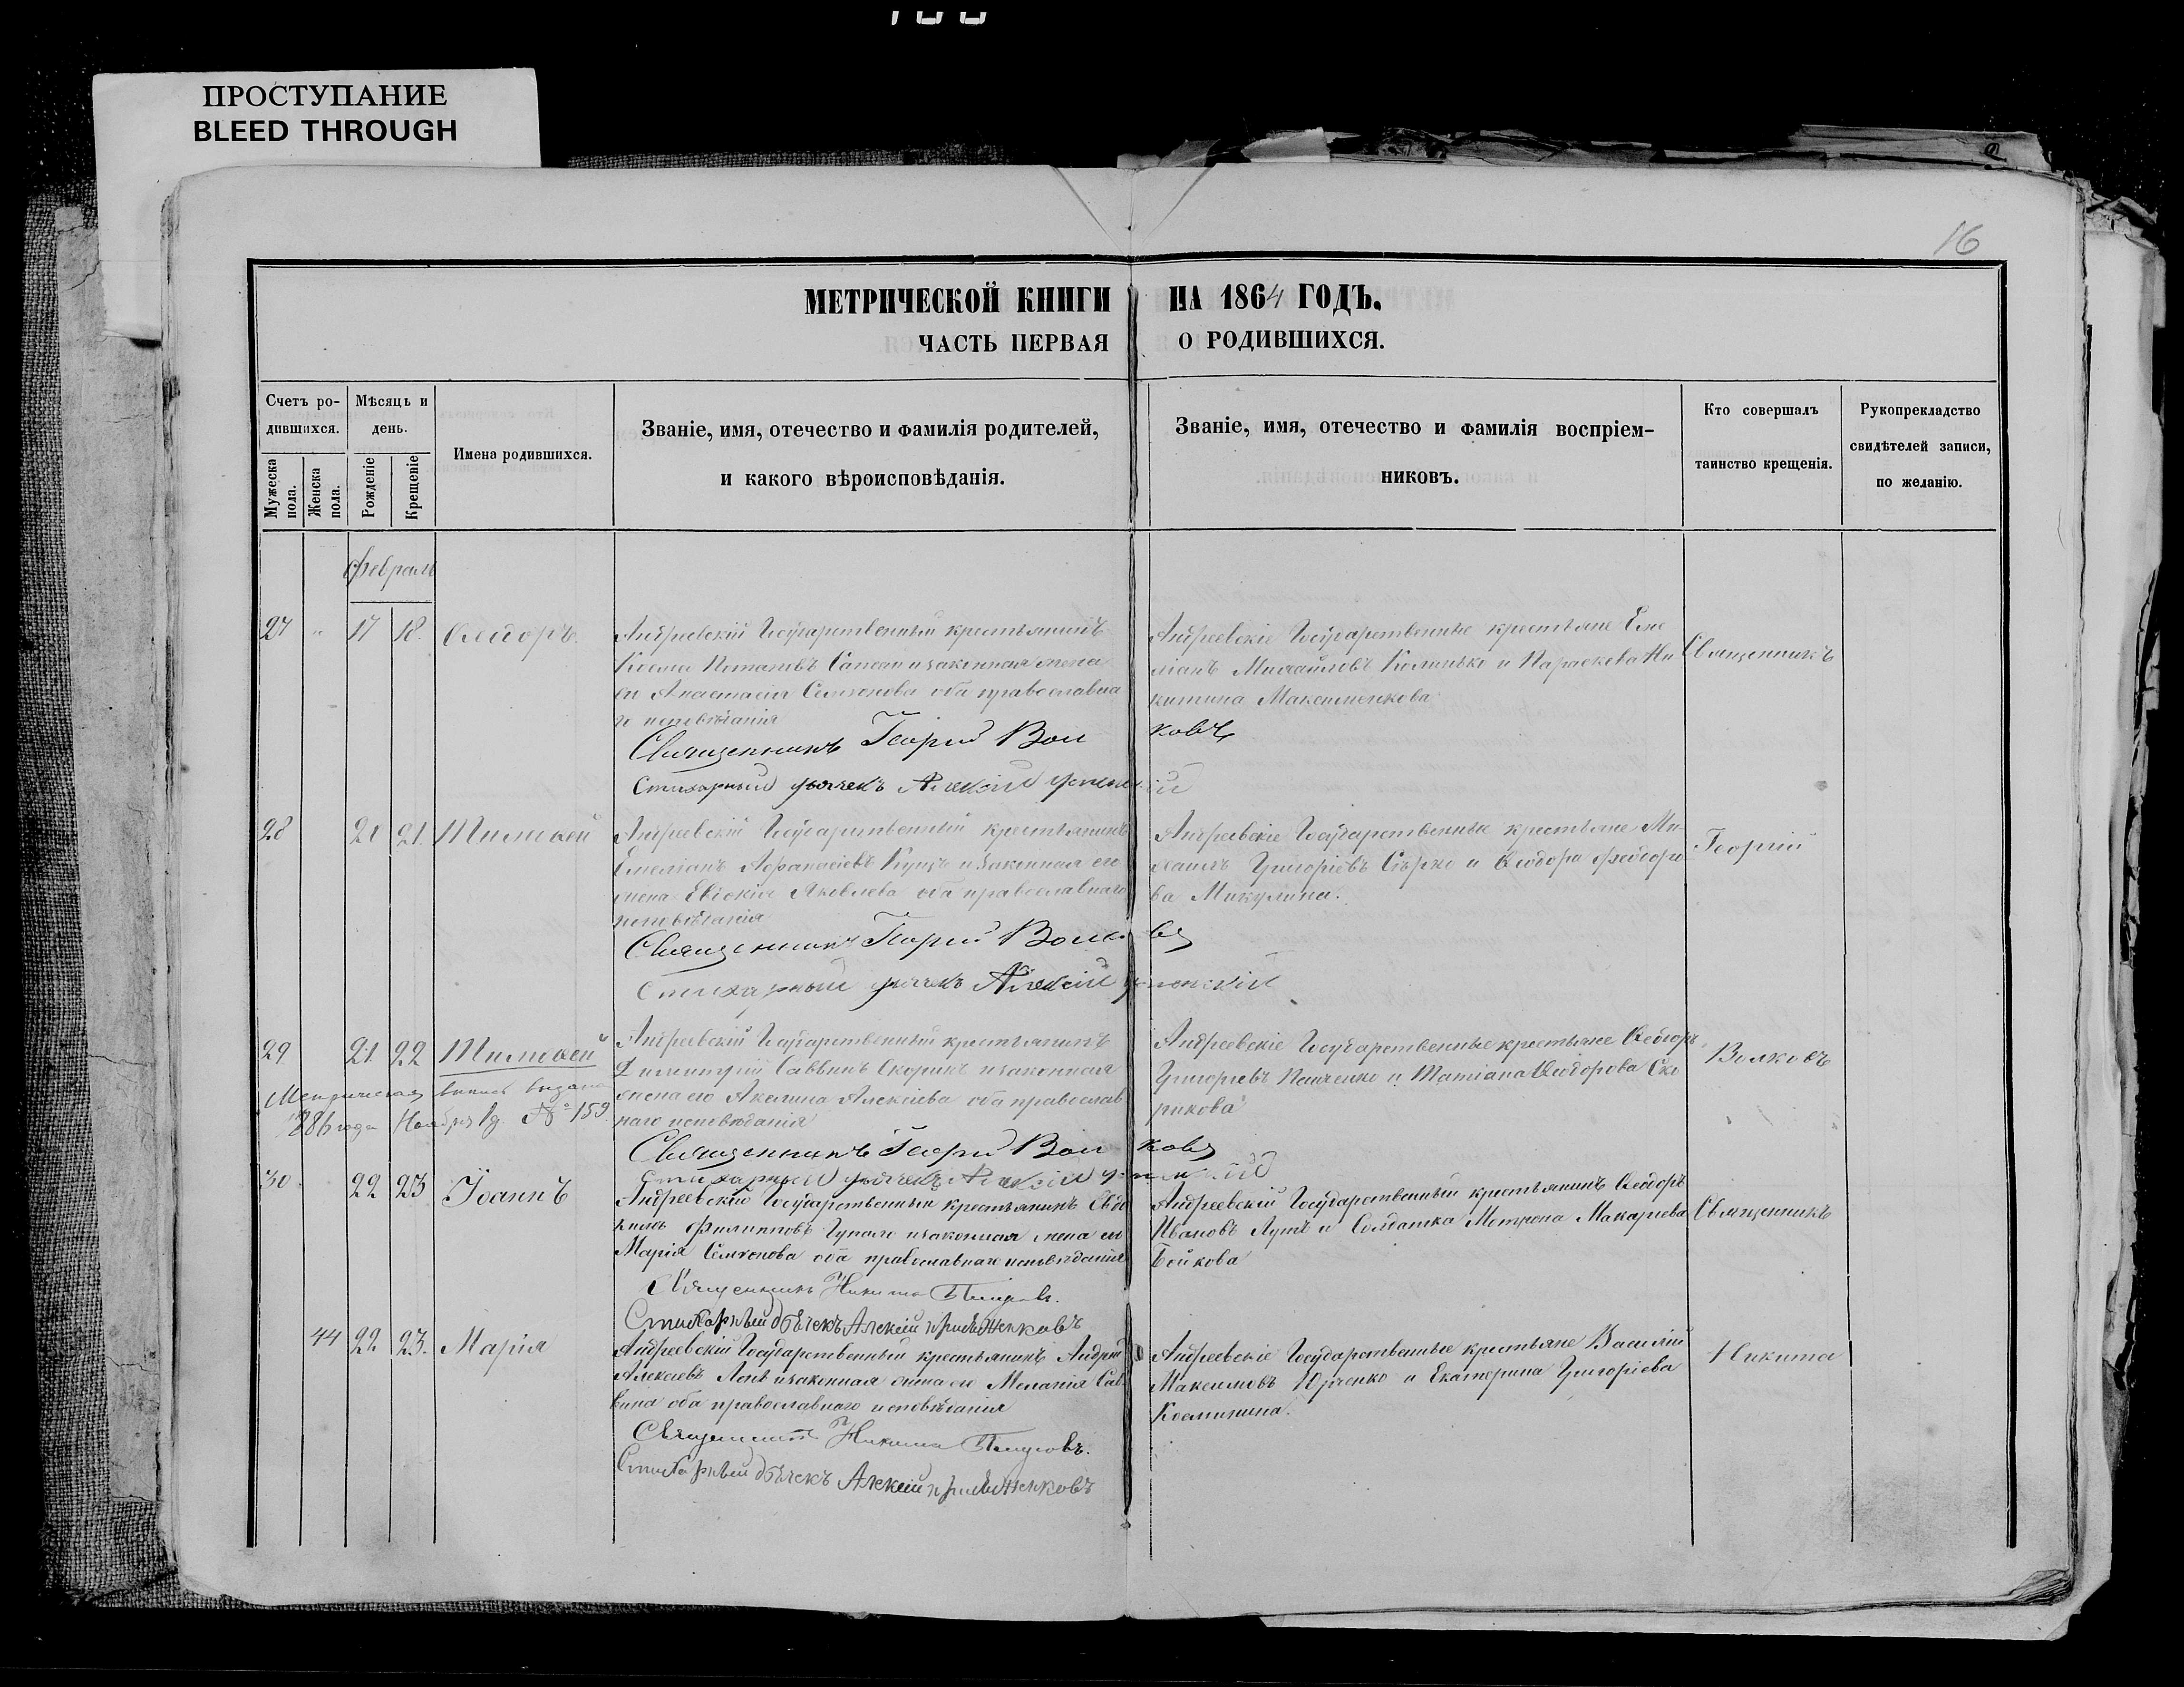 ПРОСТУПАНИЕ
BLEED THROUGH
16
МЕТРИЧЕСКОЙ КНИГИ НА 1864 ГОДЪ.
ЧАСТЬ ПЕРВАЯ О РОДИВШИХСЯ.
Счетъ ро-
дившихся.
Мужеска пола.
Женска пола.
Мѣсяцъ и
день.
Рожденіе
Крещеніе
Имена родившихся.
Званіе, имя, отечество и фамилія родителей,
и какого вѣроисповѣданія.
Званіе, имя, отечество и фамилія воспріем-
никовъ.
Кто совершалъ
таинство крещенія.
Рукоприкладство
свидѣтелей записи,
по желанію.
Февраль
27 " 17 18. Ѳеодоръ
Андреевскій Государственный крестьянинъ
Косма Потаповъ и законная жена
его Анастасія Семенова оба православна
го исповѣданія
Священникъ Георгій Волковъ
Стихарный дьячекъ Алексій
Андреевскіе Государственные крестьяне Еме
ліанъ Михайловъ и Параскева Ни
китина Максименкова
Священникъ
28 21 21. Тимоѳей
Андреевскій Государственный крестьянинъ
Емеліанъ Аѳанасіевъ Куцъ и законная его
жена Евдокія Яковлева оба православнаго
исповѣданія
Священникъ Георгій Волковъ
Стихарный дьячекъ Алексій
Андреевскіе Государственные крестьяне Ми-
хаилъ Григоріевъ Сѣрко и Ѳеодора Ѳеодоро
ва Микулина.
Георгій
29 21 22 Тимоѳей
Метрическая выпись выдана
1886 года Ноября № 159
Андреевскій Государственный крестьянинъ
Димитрій Саввинъ Скорикъ и законная
жена его Акилина Алексіева оба православ
наго исповѣданія
Священникъ Георгій Волковъ
Стихарный дьячекъ Алексій
Андреевскіе Государственные крестьяне Ѳеодоръ
Григорьевъ Панченко и Татіана Ѳеодорова Ско
рикова
Волковъ
30. 22 23 Іоаннъ
Андреевскій Государственный крестьянинъ Евдо
кимъ Филипповъ и законная жена его
Марія Семенова оба православнаго исповѣданія
Священникъ Никита
Стихарный дьячекъ Алексій
Андреевскій Государственный крестьянинъ Ѳеодоръ
Ивановъ Лутъ и Солдатка Мотрона Макарьева
Бойкова
Священникъ
44 22 23. Марія
Андреевскій Государственный крестьянинъ Андрей
Алексіевъ и законная жена его Меланія Сав-
вина оба православнаго исповѣданія
Священникъ Никита
Стихарный дьячекъ Алексій
Андреевскіе Государственные крестьяне Василій
Максимовъ Юрченко и Екатерина Григоріева
Космінина.
Никита